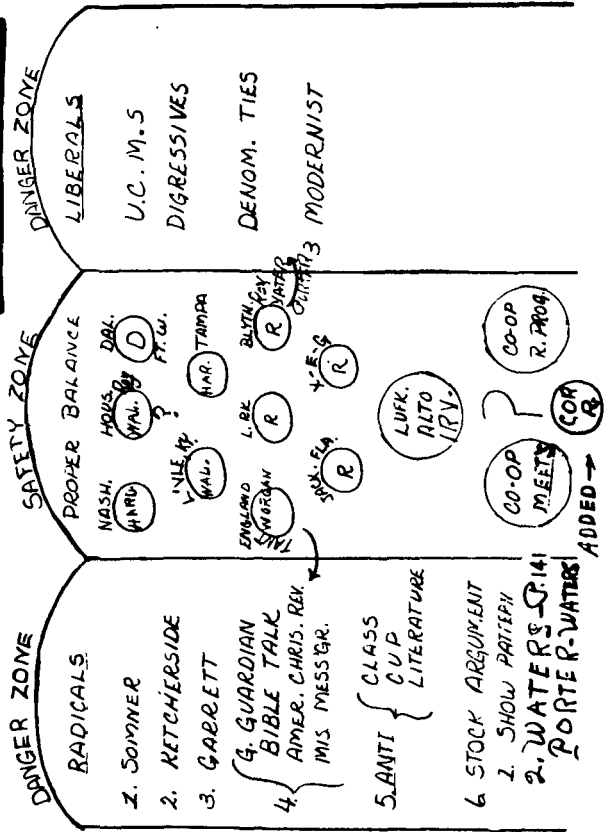 DANGER ZONE
RADICALS
1. SOMNER
2. KETCHERSIDE
3. GARRETT
4. G. GUARDIAN
BIBLE TALK
AMER. CHRIS. REV.
MIS MESS'GR.
5. ANTI CLASS
CUP
LITERATURE
6 STOCK ARGUMENT
1. SHOW PATTERN
2. WATERS-P.141
PORTER-WATERS
SAFETY ZONE
PROPER BALANCE
NASH. HOUS. DAL.
HARD. WAL. D
FT. W.
?
WAL. HAR. TAMPA
ENGLAND L. RK BLYTH.
MORGAN R R
JACK. FLA.
R R
LUFK.
ALTO
IRV.
CO-OP
MEETS
?
CO-OP
R. PROG.
ADDED→
COR
DANGER ZONE
LIBERALS
U.C.M.S
DIGRESSIVES
DENOM. TIES
3 MODERNIST